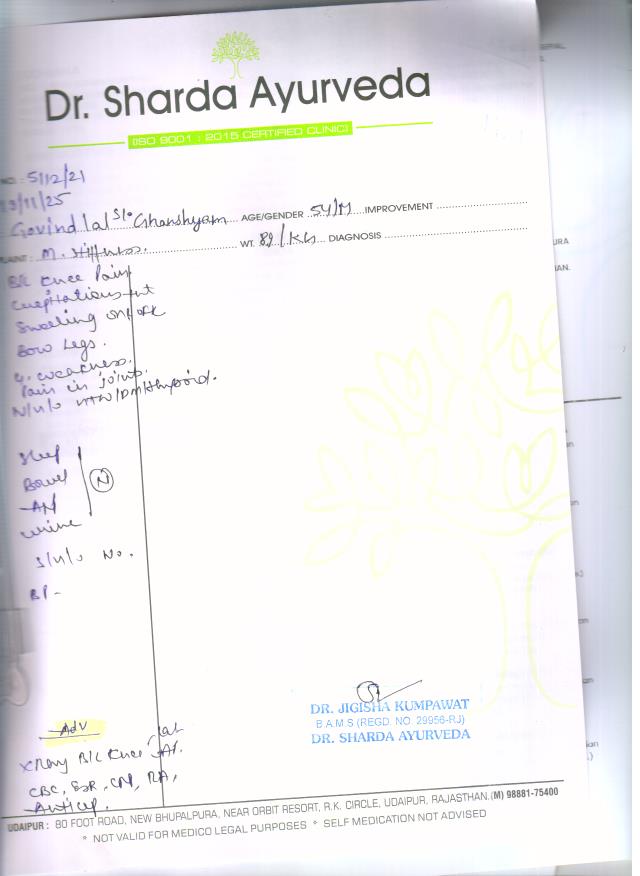 Dr. Sharda Ayurveda
(ISO 9001 : 2015 CERTIFIED CLINIC)
NO : 5112/21
13/11/25
Govind lal S/o Ghanshyam AGE/GENDER 54/M IMPROVEMENT
LAINT : M. stiffness. WT. 89/KG DIAGNOSIS
B/L Knee Pain
Crepitations +nt
Swelling on/off
Bow Legs.
G. weakness.
Pain in joints.
N/H/O HTN/DM/thyroid.
Sleep
Bowel
N
urine
S/H/O No.
BP -
Adv
Xray B/L Knee AP. lat
CBC, ESR, RA,
Anticcp.
DR. JIGISHA KUMPAWAT
B.A.M.S (REGD. NO. 29956-RJ)
DR. SHARDA AYURVEDA
UDAIPUR : 80 FOOT ROAD, NEW BHUPALPURA, NEAR ORBIT RESORT, R.K. CIRCLE, UDAIPUR, RAJASTHAN.(M) 98881-75400
* NOT VALID FOR MEDICO LEGAL PURPOSES * SELF MEDICATION NOT ADVISED